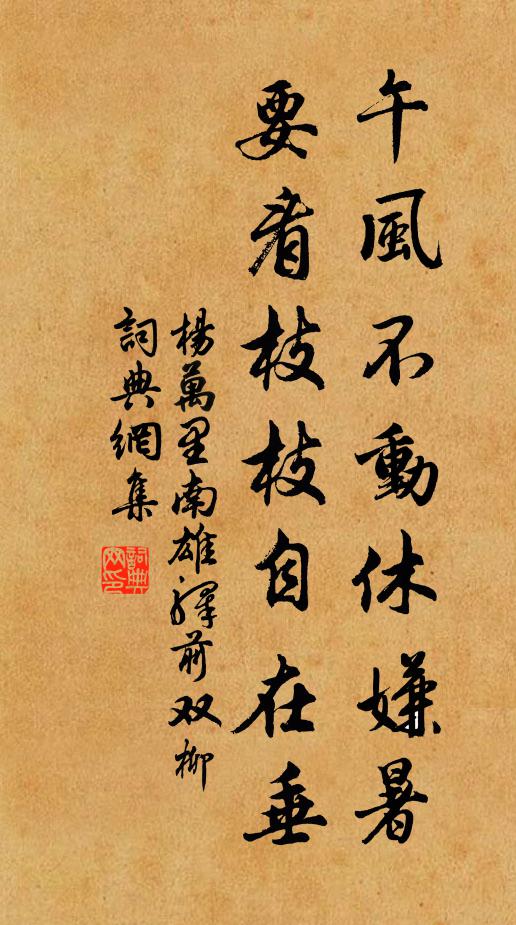 午風不動休嫌暑
要看枝枝自在垂
楊萬里南雄驛前双柳
詞典網集
詞典网印